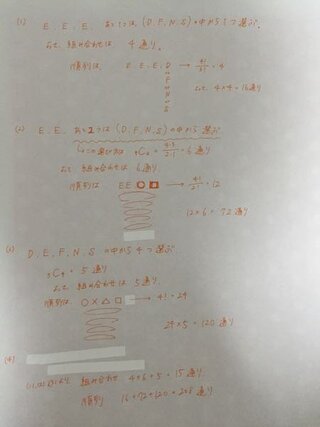 (1) E, E, E, あと1つは (D, F, N, S) の中から1つ選ぶ.
よって, 組み合わせは 4通り.
順列は E, E, E, D → 4!/3! = 4
or
F
or
N
or
S
よって 4×4 = 16通り
(2) E E, あと2つは (D, F, N, S) の中から 選ぶ
4C2 = 4·3/2·1 = 6通り
よって 組み合わせは 6通り.
順列は EE○□ → 4!/2! = 12
12×6 = 72通り
(3) D, E, F, N, S の中から 4つ選ぶ
5C4 = 5通り
よって 組み合わせは 5通り.
順列は ○×△□ → 4! = 24
24×5 = 120通り
(4)
(1), (2), (3)より 組み合わせ 4+6+5 = 15通り
順列 16+72+120 = 208通り